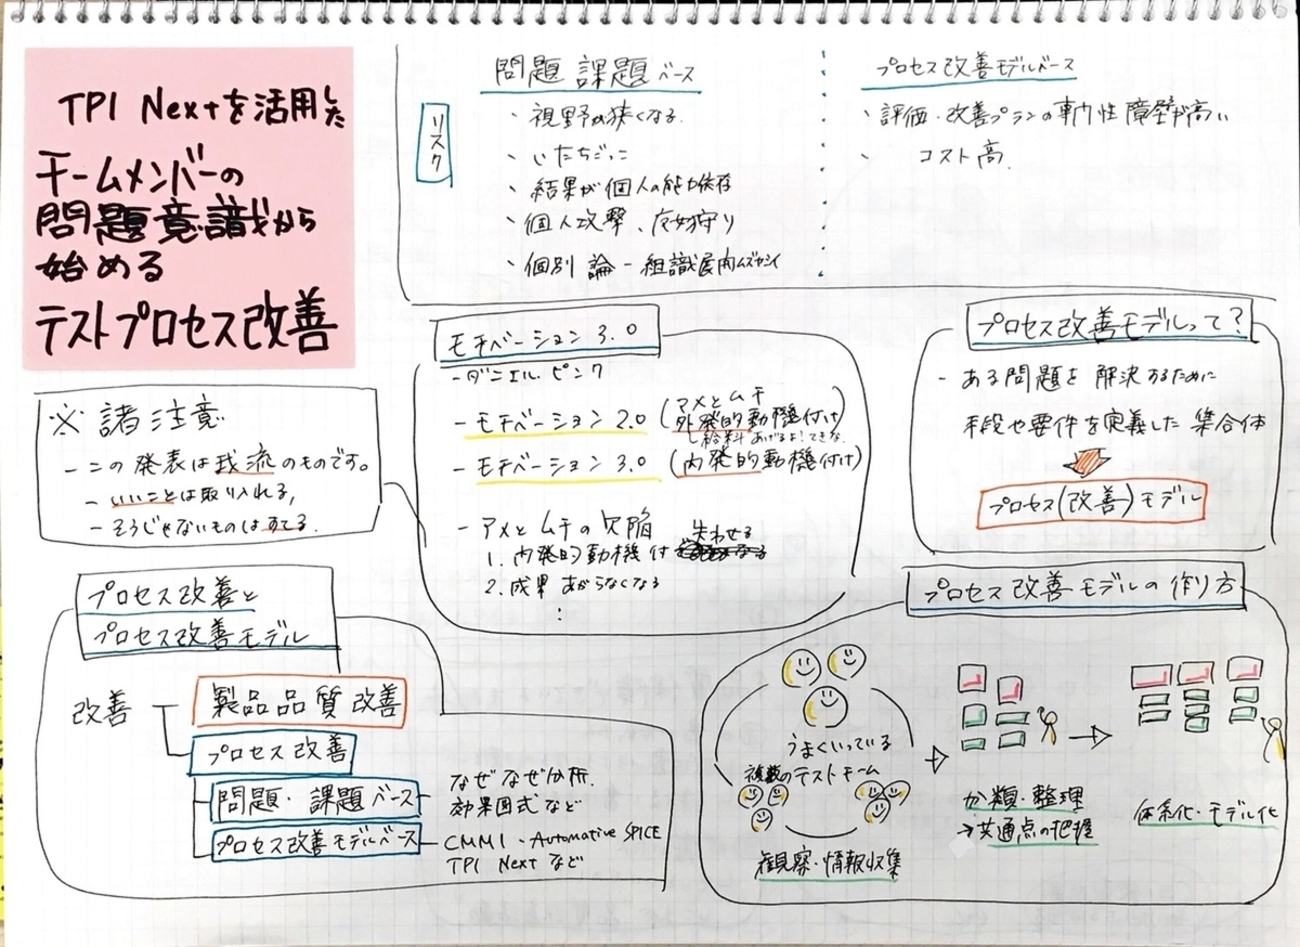 TPI Nextを活用した
チームメンバーの
問題意識から
始める
テストプロセス改善
※ 諸注意
- この発表は我流のものです。
- いいことは取り入れる,
- そうじゃないものはすてる.
リスク
問題 課題ベース
・視野が狭くなる.
・いたちごっこ
・結果が個人の能力依存
・個人攻撃、
・個別論 - 組織展内ムズカシイ
プロセス改善モデルベース
・評価・改善プランの専門性障壁が高い
・コスト高.
モチベーション 3.0
- ダニエル・ピンク
- モチベーション 2.0 (アメとムチ
外発的動機付け)
給料あげるよ!できな
- モチベーション 3.0 (内発的動機付け)
- アメとムチの欠陥
1. 内発的動機付 失わせる
2. 成果 あがらなくなる
:
プロセス改善モデルって?
- ある問題を解決するために
手段や要件を定義した集合体
プロセス(改善)モデル
プロセス改善と
プロセス改善モデル
改善
製品品質改善
プロセス改善
問題・課題ベース
なぜなぜ分析.
効果図式など
プロセス改善モデルベース
CMMI・Automative SPICE
TPI Next など
プロセス改善モデルの作り方
うまくいっている
複数のテストチーム
観察・情報収集
分類・整理
→共通点の把握
体系化・モデル化